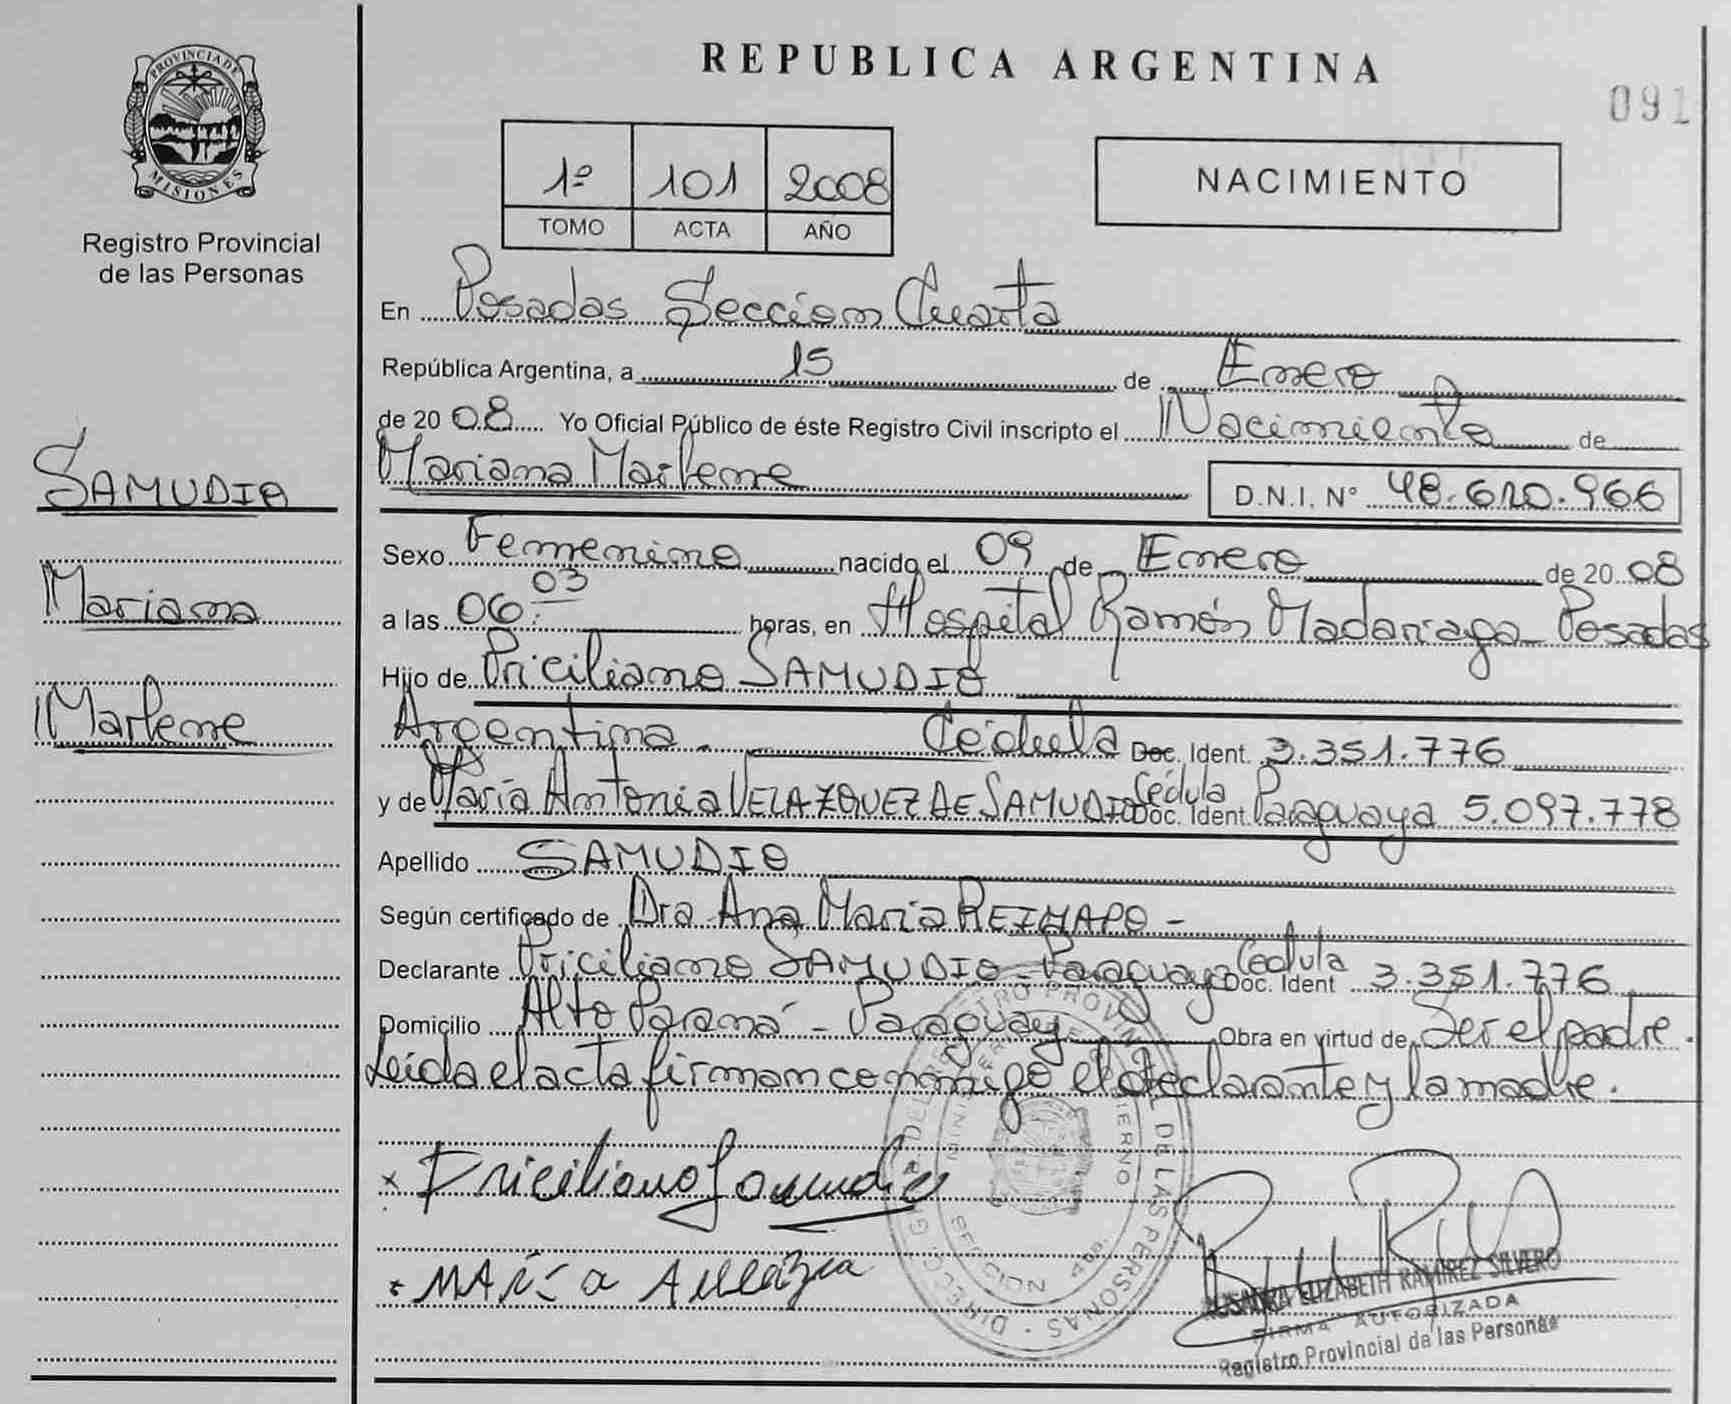 PROVINCIA DE
MISIONES
Registro Provincial
de las Personas
SAMUDIO
Mariana
Marlene
REPUBLICA ARGENTINA
091
1º 101 2008
TOMO ACTA AÑO
NACIMIENTO
En Posadas Sección Cuarta
República Argentina, a 15 de Enero
de 20 08 Yo Oficial Público de éste Registro Civil inscripto el Nacimiento de
Mariana Marlene D.N.I. N° 48.610.966
Sexo Femenino nacido el 09 de Enero de 20 08
a las 06:03 horas, en Hospital Ramón Madariaga Posadas
Hijo de Priciliano SAMUDIO
Argentina. Cédula Doc. Ident. 3.351.776
y de María Antonia VELAZQUEZ DE SAMUDIO Cédula Doc. Ident. Paraguaya 5.097.778
Apellido SAMUDIO
Según certificado de Dra Ana María
Declarante Priciliano SAMUDIO - Paraguaya Cédula Doc. Ident 3.351.776
Domicilio Alto Paraná - Paraguay Obra en virtud de Ser el padre.
Leída el acta firman conmigo el declarante y la madre.
x Priciliano Samudio
x MARía
ROSANNA ELIZABETH RAMIREZ SILVERO
FIRMA AUTORIZADA
Registro Provincial de las Personas